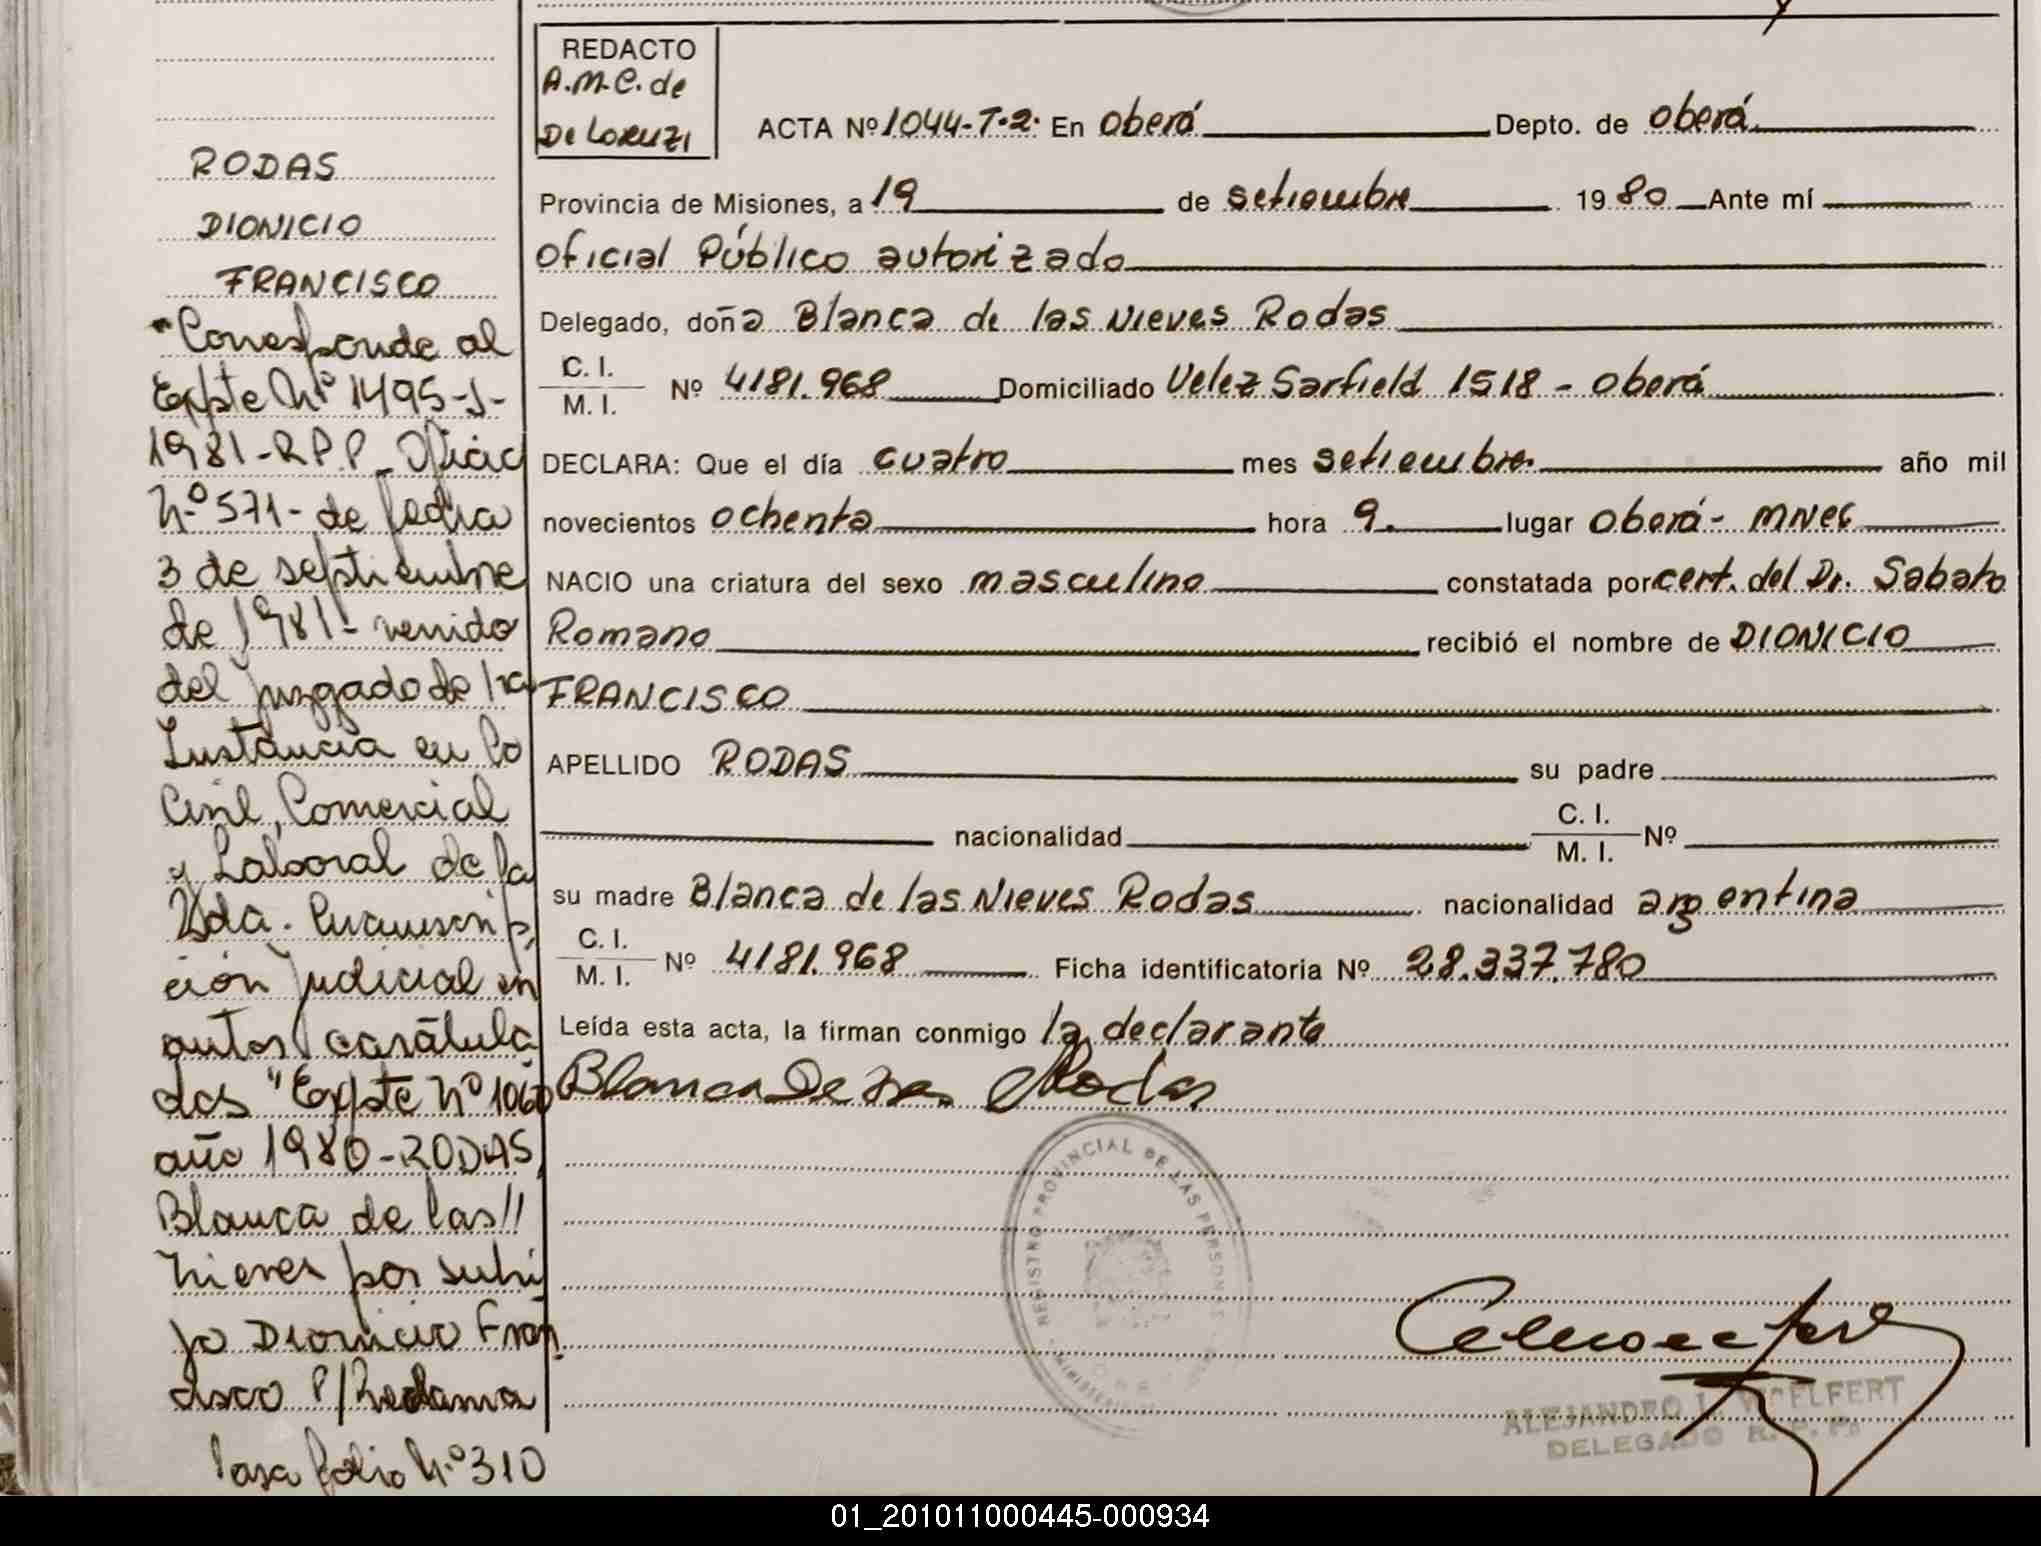 RODAS
DIONICIO
FRANCISCO
"Corresponde al
Expte Nº 1495-J-
1981-R.P.P. Oficio
Nº 571- de fecha
3 de septiembre
de 1981- venido
del juzgado de 1ra
Instancia en lo
Civil, Comercial
y Laboral de la
2da. Circunscrip
ción judicial en
autos caratula
dos "Expte Nº 1060
año 1980-RODAS,
Blanca de las//
Nieves por su hi
jo Dionicio Fran
cisco P/Reclama
Pasa folio Nº 310
REDACTO
A.M.C. de
De Loruzi
ACTA Nº 1044-T-2. En Oberá Depto. de Oberá
Provincia de Misiones, a 19 de setiembre 1980 Ante mí
Oficial Público autorizado
Delegado, doña Blanca de las Nieves Rodas
C. I.
M. I. Nº 4181.968 Domiciliado Velez Sarfield 1518 - Oberá
DECLARA: Que el día cuatro mes setiembre año mil
novecientos ochenta hora 9. lugar Oberá-
NACIO una criatura del sexo masculino constatada por cert. del Dr. Sabato
Romano recibió el nombre de DIONICIO
FRANCISCO
APELLIDO RODAS su padre
nacionalidad C. I.
M. I. Nº
su madre Blanca de las Nieves Rodas nacionalidad argentina
C. I.
M. I. Nº 4181.968 Ficha identificatoria Nº 28.337.780
Leída esta acta, la firman conmigo la declarante
Blanca De las Rodas
REGISTRO PROVINCIAL DE LAS PERSONAS
ALEJANDRO L. WOELFERT
DELEGADO R. P. P.
01_201011000445-000934